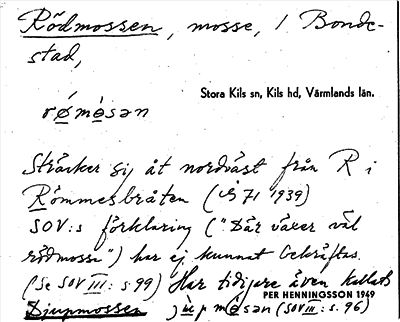 Rödmossen, mosse, 1 Bonde-
stad,
Stora Kils sn, Kils hd, Värmlands län.
rǿmòsən
Sträcker sig åt nordväst från R i
Römmesbråten ( 71 1939)
SOV:s förklaring ("Där växer väl
rödmossa") har ej kunnat bekräftas.
(Se SOV III: s 99) Har tidigare även kallats
PER HENNINGSSON 1949
Djupmossen (SOV III: s. 96)